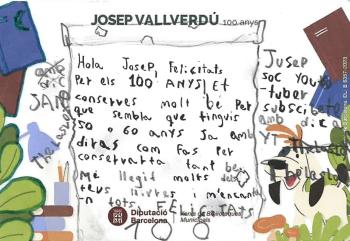 JOSEP VALLVERDÚ 100 anys
Hola Josep, Felicitats
Per els 100 ANYS, Et
conserves molt bé Per
que sembla que tinguis
50 o 60 anys Ja amb
diras com Fas per
conservarta tant be
Me llegit molts dels
teus llivres i m'encanta
n tots. FELICITATS
Josep
soc You
tuber
subscibate
amb dien
YT
Diputació
Barcelona
Xarxa de Biblioteques
Municipals